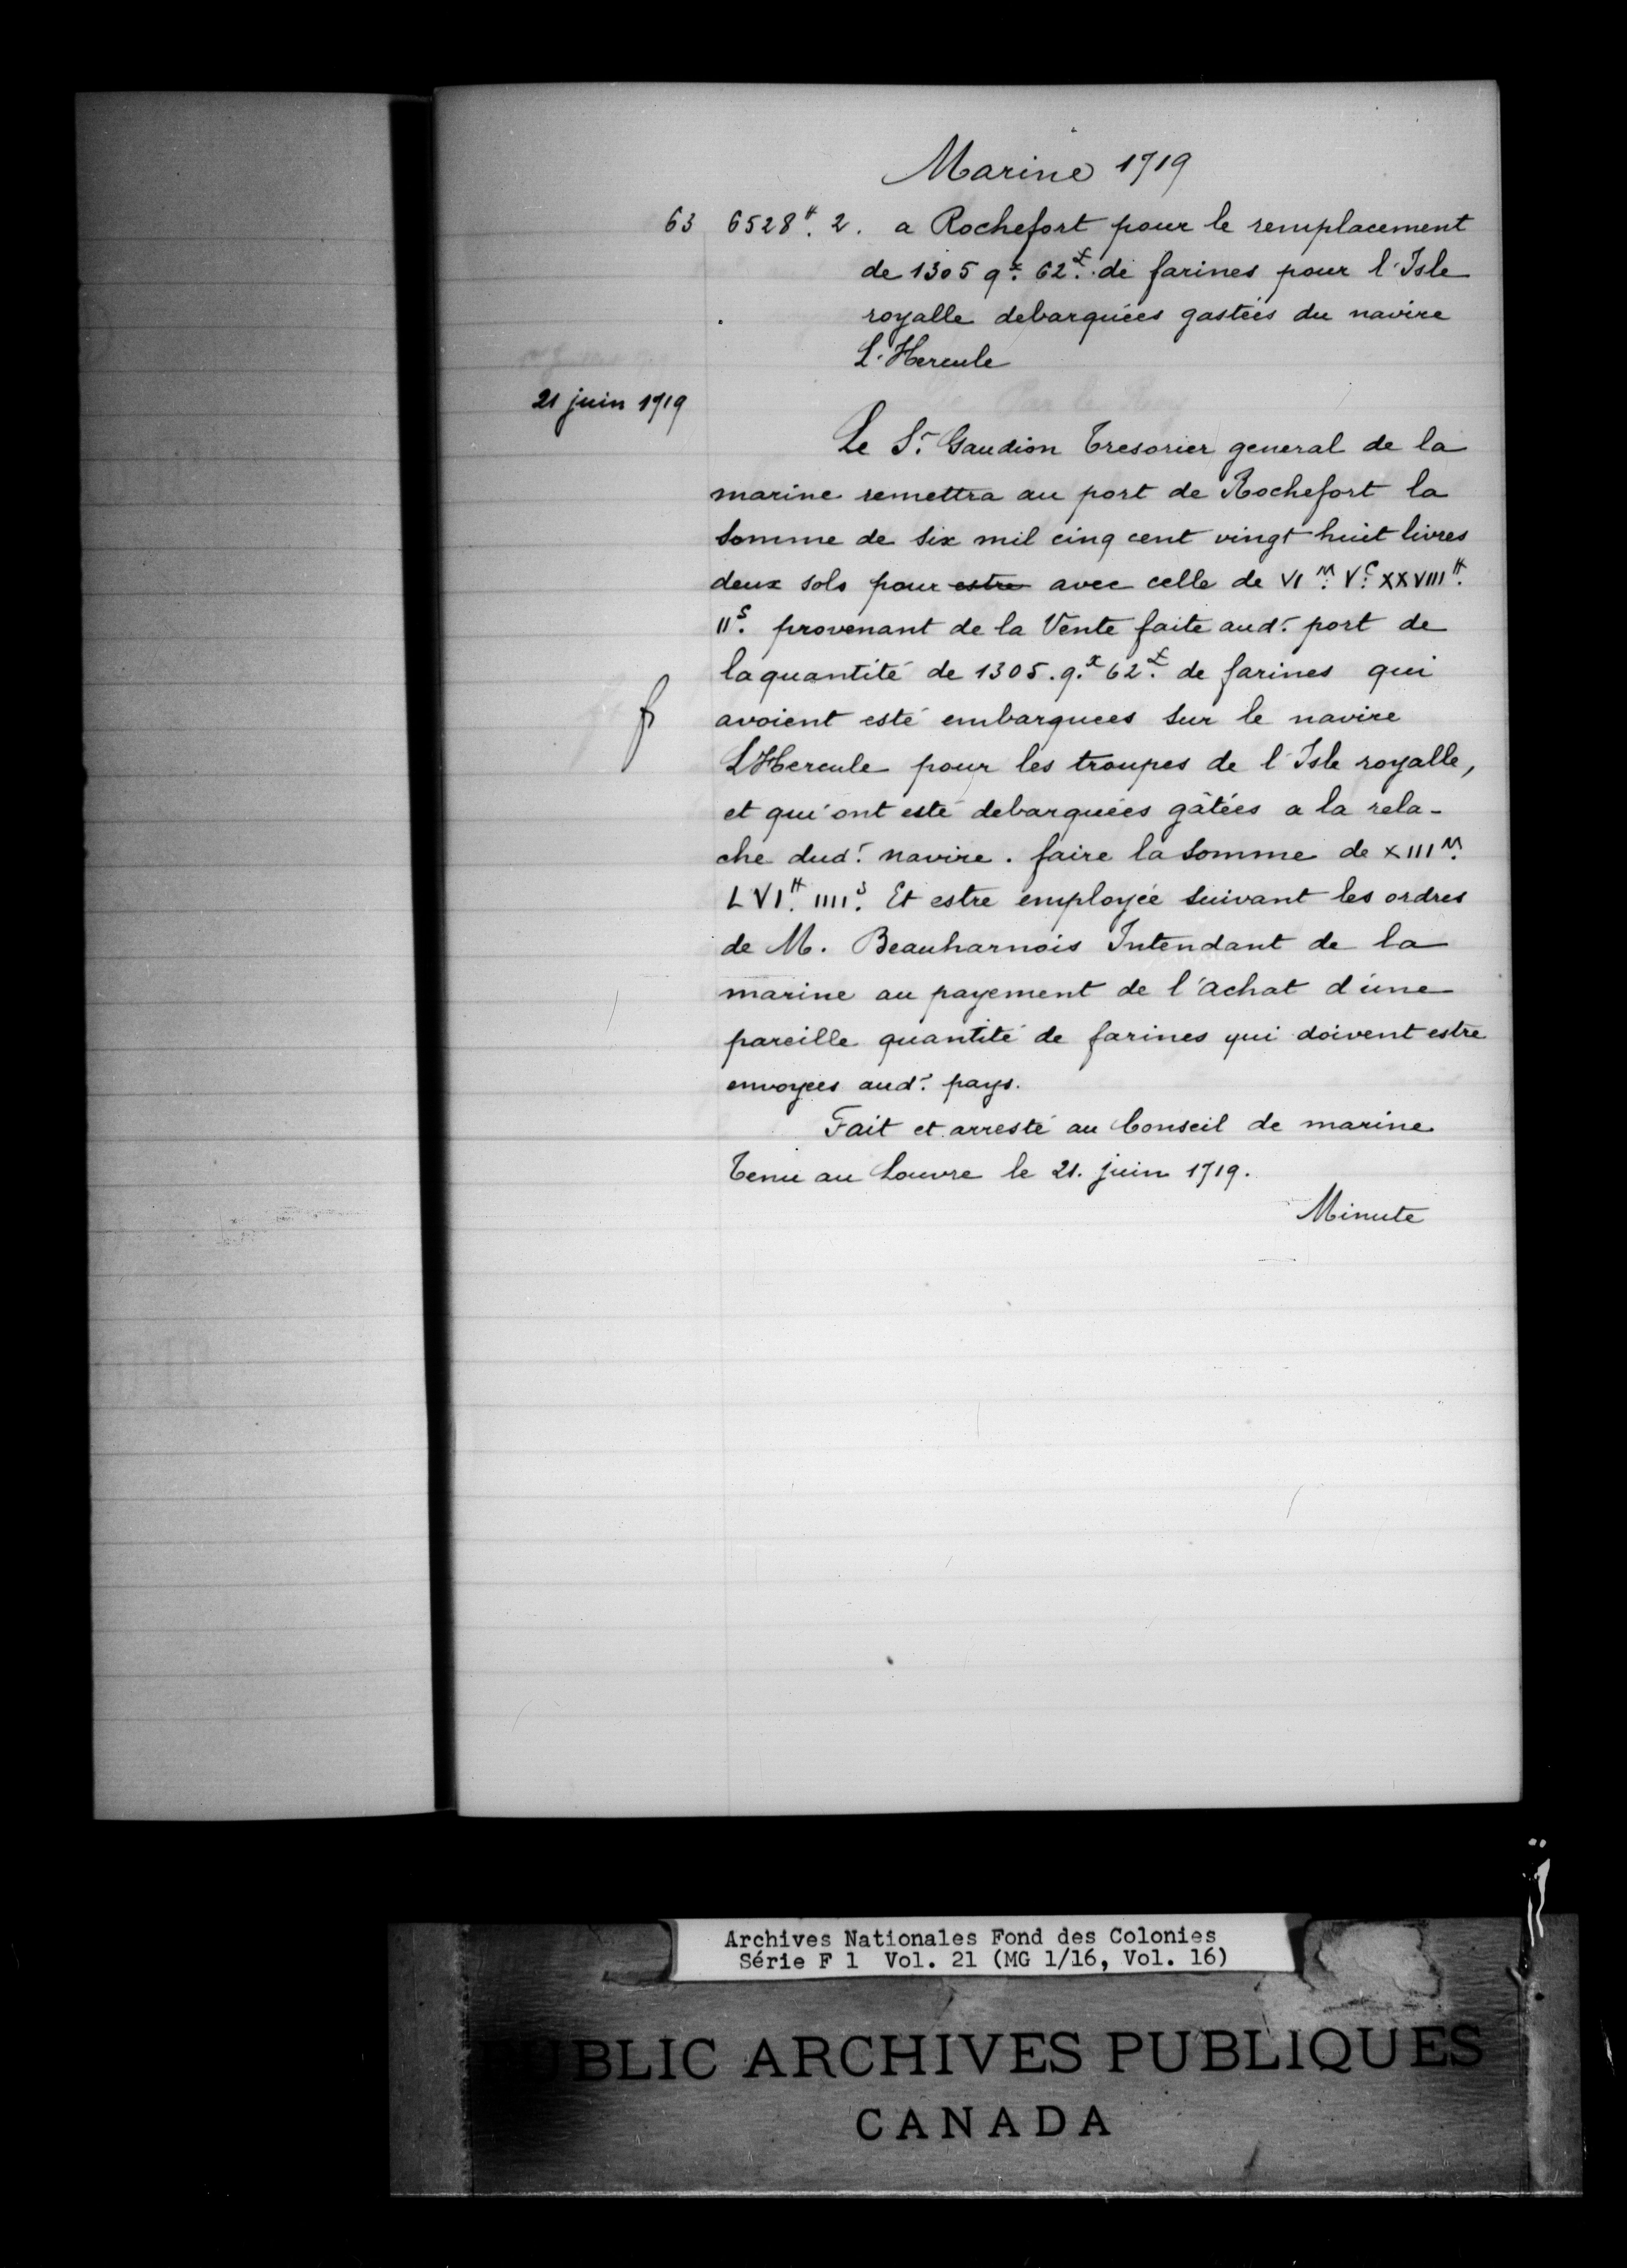 Marine 1719
63 6528ᴴ. 2. a Rochefort pour le remplacement
de 1305 qˣ. 62ᵗ. de farines pour l'Isle
royalle debarquées gastées du navire
L'Hercule
21 juin 1719
Le Sʳ. Gaudion Tresorier general de la
marine remettra au port de Rochefort la
somme de six mil cinq cent vingt huit livres
deux sols pour estre avec celle de VIᴹ. Vᶜ. XXVIIIᴴ.
IIˢ. provenant de la Vente faite audᵗ. port de
la quantité de 1305. qˣ. 62ᵗ. de farines qui
avoient esté embarquees sur le navire
L'Hercule pour les troupes de l'Isle royalle,
et qui ont esté debarquées gâtées a la rela-
che dudᵗ. navire. faire la somme de XIIIᴹ.
LVIᴴ. IIIIˢ. Et estre employée suivant les ordres
de M. Beauharnois Intendant de la
marine au payement de l'achat d'une
pareille quantité de farines qui doivent estre
envoyees audᵗ. pays.
Fait et arresté au Conseil de marine
Tenu au Louvre le 21. juin 1719.
Minute
Archives Nationales Fond des Colonies
Série F 1 Vol. 21 (MG 1/16, Vol. 16)
PUBLIC ARCHIVES PUBLIQUES
CANADA